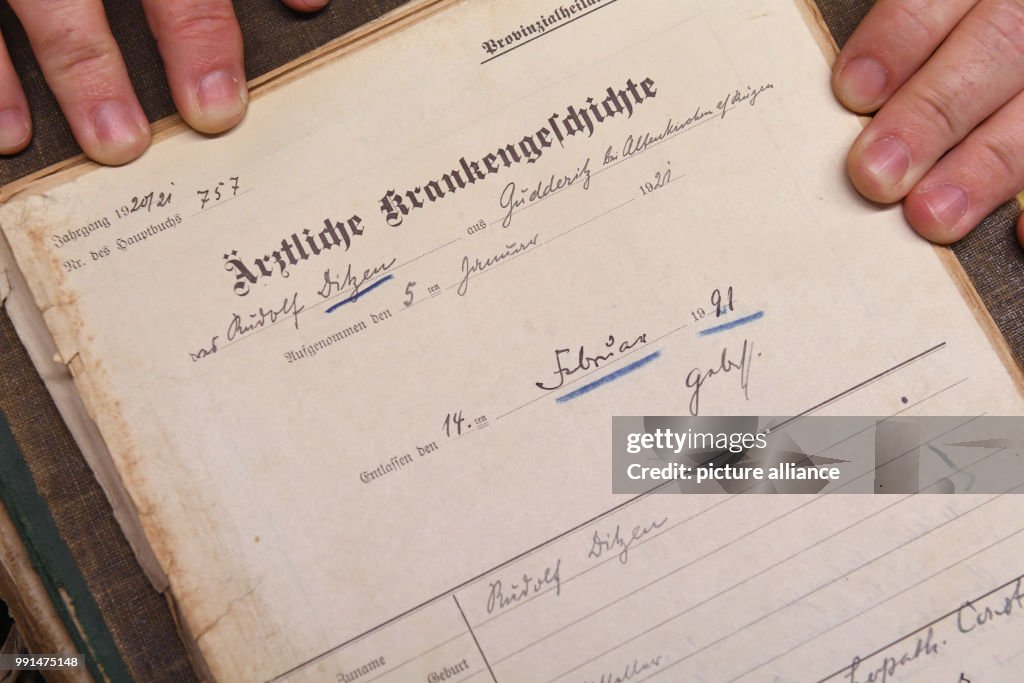 Provinzialheil
Jahrgang 1920/21
Nr. des Hauptbuchs 757
Ärztliche Krankengeschichte
des Rudolf Ditzen aus Gudderitz bei Altenkirchen a/Rügen
Aufgenommen den 5ten Januar 1921
Entlassen den 14.ten Februar 1921
gebess.
gettyimages®
Credit: picture alliance
Rudolf Ditzen
Zuname
Geburt
991475148